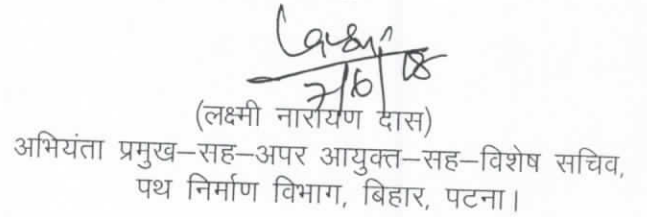 7/6/18
(लक्ष्मी नारायण दास)
अभियंता प्रमुख–सह–अपर आयुक्त–सह–विशेष सचिव,
पथ निर्माण विभाग, बिहार, पटना।